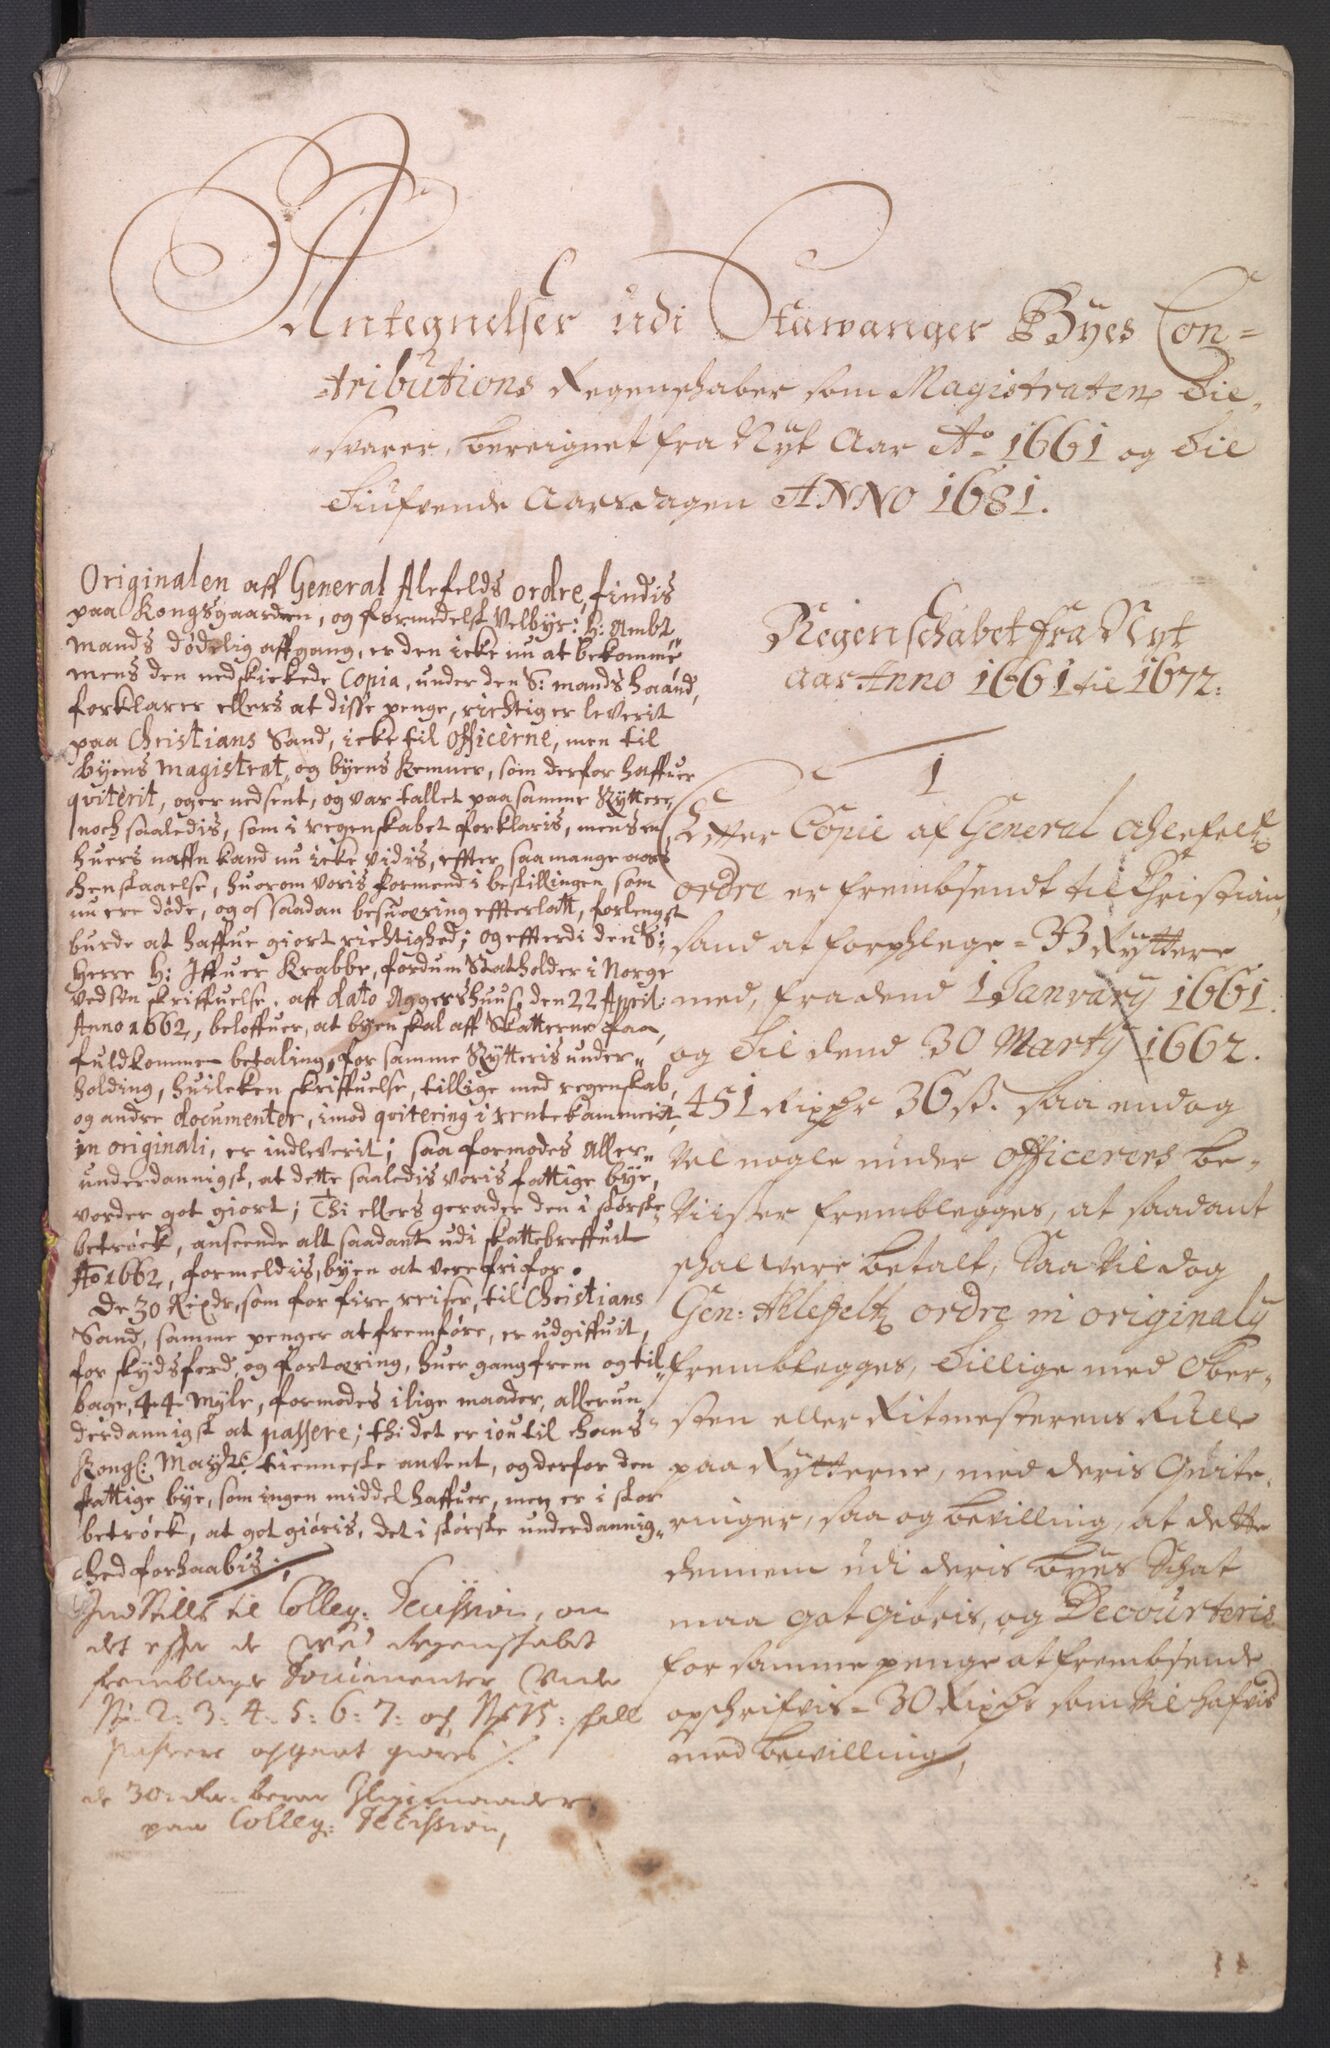 Antegnelser udi Stawanger Byes Con-
tributions Regenschaber som Magistraten til-
svarer, bereignet fra Nyt Aar Ao 1661 og til
tiufvende Aarsdagen ANNO 1681.
Originalen aff General Alefelds ordre, findis
paa Kongsgaarden, og formedelst Velbyr: H: Ambt
mands dødelig affgang, er den icke nu at bekomme
mens den nedskickede Copia, under den S: mands haand,
forklarer ellers at disse penge, richtig er leverit
paa Christians Sand, icke til Officerne, men til
byens magistrat, og byens Kemner, som derfor haffuer
qviterit, og er nedsent, og var tallet paa samme Rytterr,
noch saaledis, som i regenskabet forklaris, mens en
huers naffn kand nu icke vidis, effter saa mange aars
henstaaelse, huorom voris formend i bestillingen som
nu ere døde, og os saadan besuæring effterlatt, forlengst
burde at haffue giort richtighed; og effterdi den S:
Herre H: Iffuer Krabbe, fordum Statholder i Norge
ved sin skriffuelse, aff dato Aggershuus, den 22 April:
Anno 1662, beloffuer, at byen skal aff Skatterne faa,
fuldkommen betaling, for samme Rytteris under-
holding, huileken skriffuelse, tillige med regenskab,
og andre documenter, imod qvitering i rentekammerit,
in originali, er indleverit; saa formodes Aller-
underdannigst, at dette saaledis voris fattige bye,
vorder got giort; Thi ellers gerader den i største
betrøck, anseende alt saadant udi skattebreffuit
Ao 1662, formeldis, byen at vere fri for.
De 30 Rixdr, som for fire reiser, til Christians
Sand, samme penger at fremføre, er udgiffuit,
for skydsferd, og fortæring, huer gang frem og til-
bage, 44 Myle, formodes i lige maader, allerun
derdannigst at passere; thi det er iou til Hans
Kongl: Mayts: tienneste anvent, og derfor den
fattige bye, som ingen middel haffuer, men er i stor
betrøck, at got giøris, det i største underdannig-
hed forhaabis;
Indstills til Colley: Decission, om
det efter de wed Regenskabet
fremblagde Documenter
No 2: 3: 4: 5: 6: 7: och skall
passere
de 30 Rdr berør
paa Colleg: Decission,
Regenschabet fra Nyt
aar Anno 1661 til 1672:
1
Effter Copie af General Ahlefeldtz
ordre er frembsendt til Christian-
sand at forphlege 33 Ryttere
med, fra dend 1 Janvary 1661.
og til dend 30 Marty 1662.
451 Rixdr 36 ß. saa endog
vel nogle under officerers be-
viiser fremblegges, at saadant
schal were betalt, saa vil dog
Gen: Ahlefeltz ordre in originaly
fremblegges, tillige med Ober-
sten eller Ritmesterens Rulle
paa Rytterne, med deris Qvite-
ringer, saa og bevilling, at dette
dennem udi deris byes Schat
maa got giøris, og Decourteris
for samme penge at frembsende
opschrifvis 30 Rixdr som vil hafvis
med bevilling,